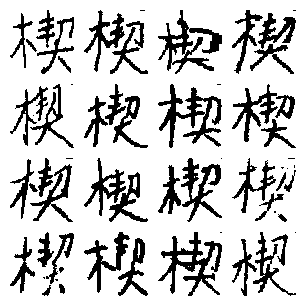 楔楔楔楔
楔楔楔楔
楔楔楔楔
楔楔楔楔